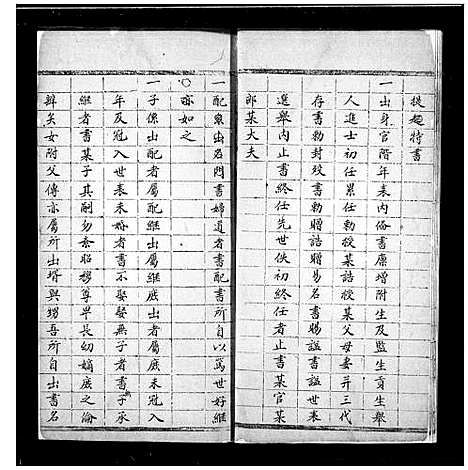 提逈特書
一出身官階年表內俻書廩增附生及監生貢生舉
人進士初任累任勅授某誥授某父母妻并三代
存書勅封歿書勅贈誥贈易名書賜謚書謚世表
選舉內止書終任先世佚初終任者止書某官某
郎某大夫
一配衆出名閥書婦道者書配書所自以篤世好繼
亦如之
一子係出配者屬配繼出者屬繼庶出者屬庶未冠入
年及冠入世表未婚者書不娶娶無子者書無子承
繼者書某子其嗣勿紊昭穆尊卑長幼嫡庶之倫
辨矣女附父傳亦屬所出壻與甥吾所自出書名